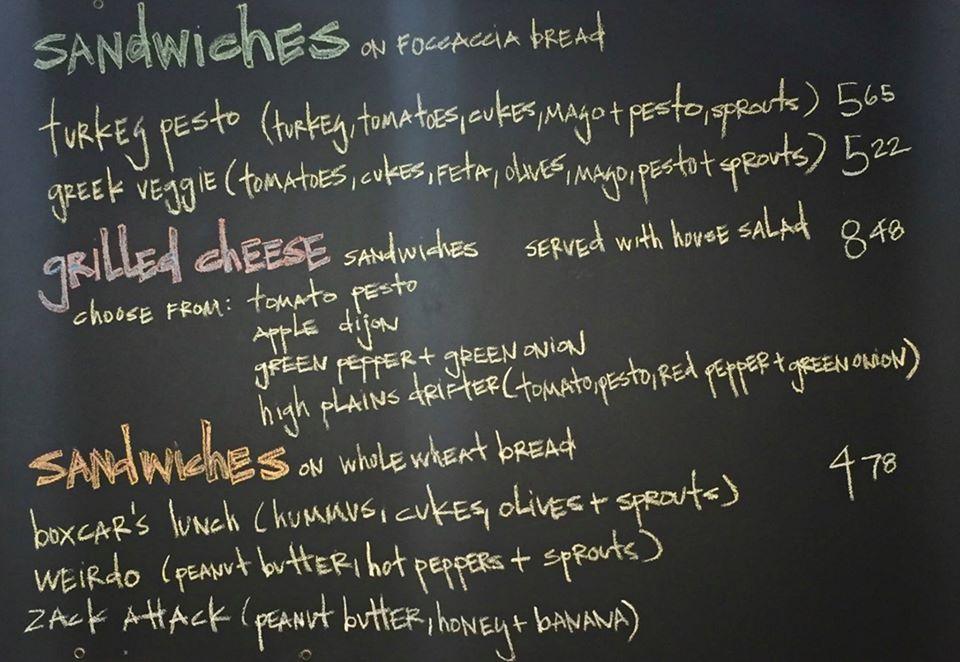 SANdwichES ON FOCCACCIA bREAd
tURKEy pESto (tURKEy, tOMAtOES, cUKES, MAyo + pESto, spRoUts) 5 65
gREEk vEggiE (tOMAtOES, cUKES, FEtA, OlivES, MAyo, pESto + spRoUts) 5 22
gRillEd chEESE SANdwichES SERVEd with hoUSE SAlAd 8 48
chooSE FROM: tomAto pESto
ApplE dijoN
gREEN pEppER + gREEN oNioN
high plAiNS dRiftER (tomAto, pESto, REd pEppER + gREEN oNioN)
SANdwichES ON wholE whEAt bREAd 4 78
boxcAR'S lUNch (hUMMUS, cUKES, olivES + spRoUts)
WEiRdo (pEANUt bUttER, hot pEppERS + spRoUts)
ZAck AttAck (pEANUt bUttER, hoNEy + bANANA)